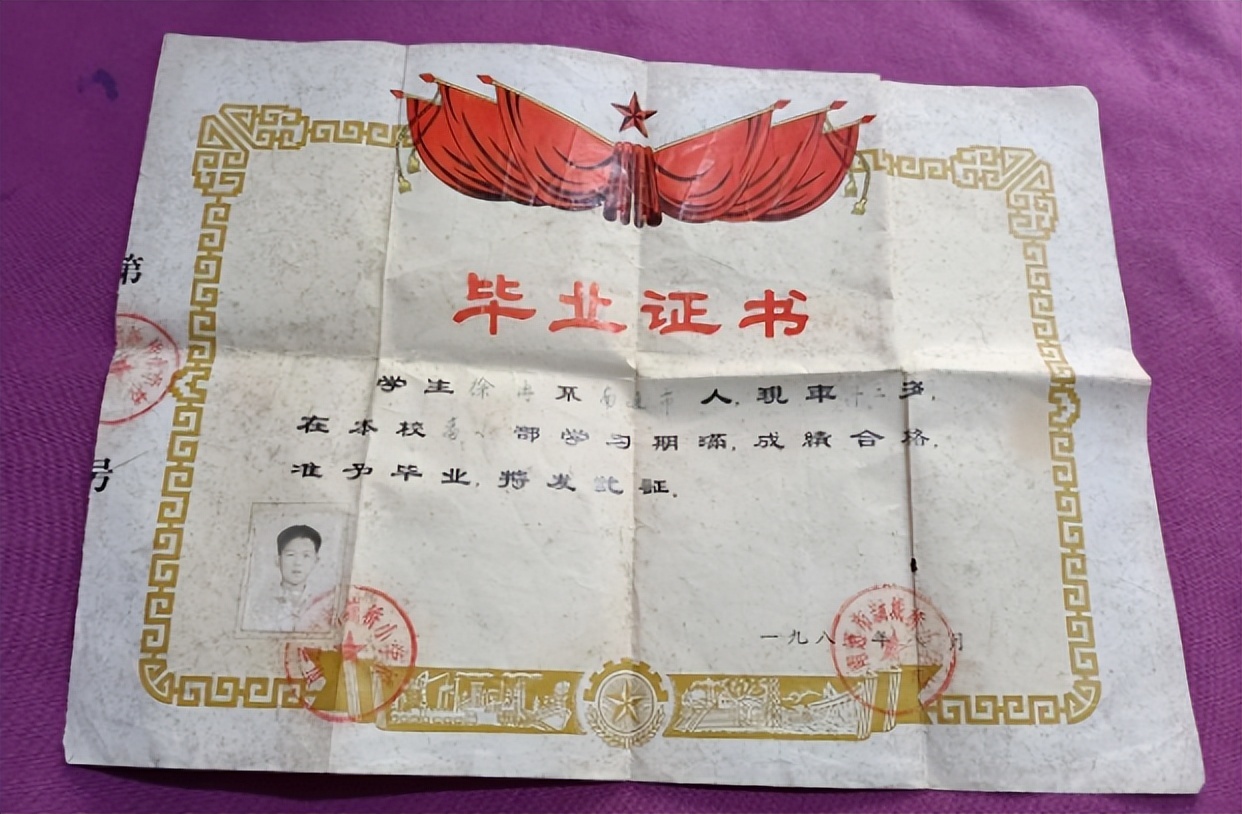 毕业证书
第
号
学生徐 系南通市人,现年十三岁,
在本校高小部学习期满,成绩合格,
准予毕业,特发此证。
一九八 年 月